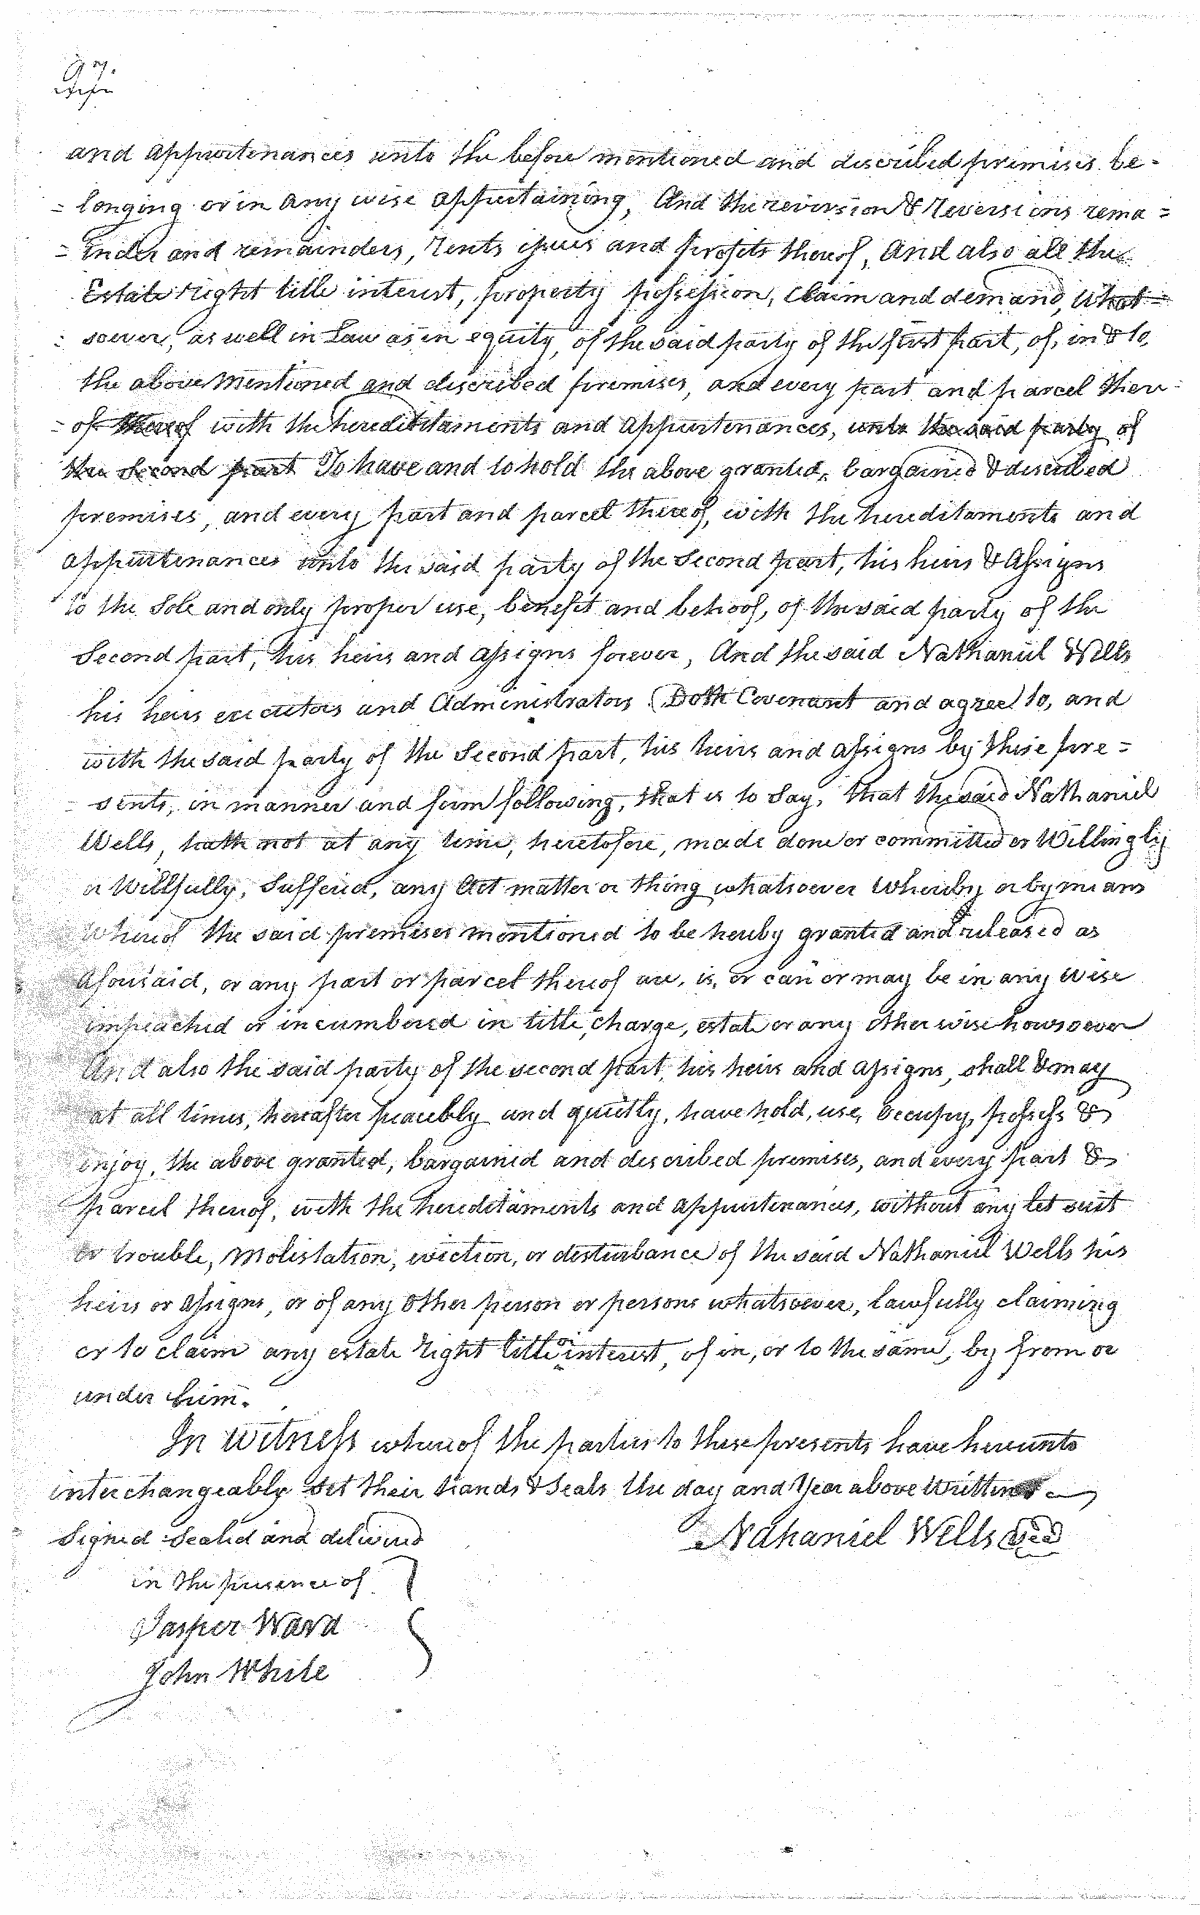 97.
and appurtenances unto the before mentioned and described premises be-
= longing or in any wise appertaining, And the reversion & Reversions rema =
= inder and remainders, rents issues and profits thereof, And also all the
Estate right title interest, property possession, Claim and demand, What =
: soever, as well in Law as in equity, of the said party of the first part, of, in & to,
the above Mentioned and described premises, and every part and parcel there-
- of thereof with the hereditaments and appurtenances, unto the said party of
the second part To have and to hold the above granted, bargained & described
premises, and every part and parcel thereof, with the hereditaments and
appurtenances unto the said party of the Second part, his heirs & Assigns
to the Sole and only proper use, benefit and behoof, of the said party of the
Second part, his heirs and assigns forever, And the said Nathaniel Wells
his heirs executors and Administrators (Doth Covenant and agree) to, and
with the said party of the Second part, his heirs and assigns by these pre =
= sents, in manner and form following, that is to Say, that the said Nathaniel
Wells, hath not at any time, heretofore, made done or committed or Willingly
or Willfully, Suffered, any Act matter or thing whatsoever Whereby or by means
Whereof the said premises mentioned to be hereby granted and released as
Aforesaid, or any part or parcel thereof are, is, or can or may be in any wise
impeached or incumbered in title, charge, estate or any otherwise howsoever
And also the said party of the second part, his heirs and assigns, shall & may
at all times, hereafter peacebly and quietly, have hold, use, occupy, possess &
enjoy, the above granted, bargained and described premises, and every part &
parcel thereof, with the hereditaments and appurtenances, without any let suit
or trouble, Molistation, eviction, or desturbance of the said Nathaniel Wells his
heirs or assigns, or of any other person or persons whatsoever, lawfully claiming
or to claim any estate right title or interest, of in, or to the same, by from or
under him.
In witness whereof the parties to these presents have hereunto
interchangeably set their hands & Seals the day and Year above Written
Signed Sealed and delivered
Nathaniel Wells Seal
in the presence of
Jasper Ward
John White